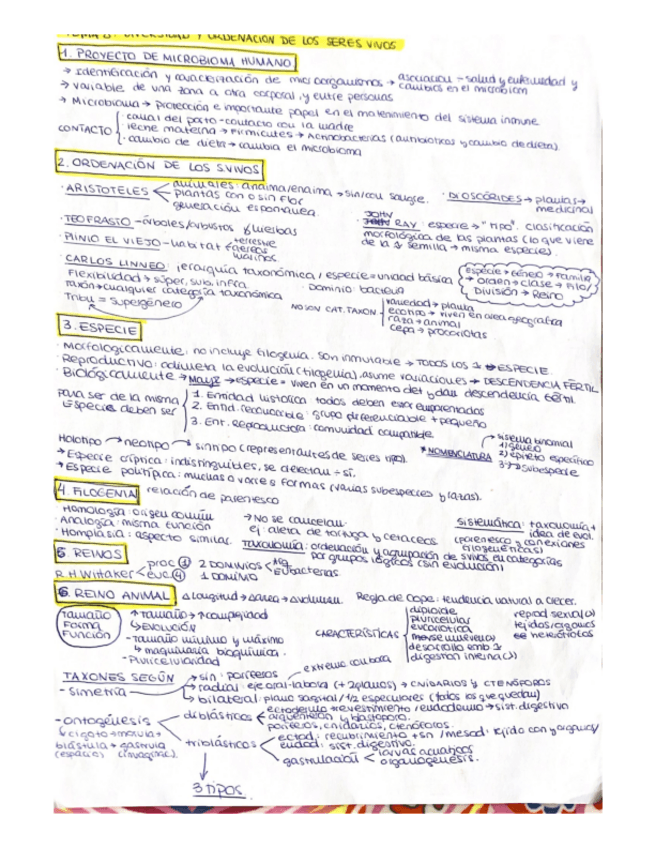 DIVERSIDAD Y ORDENACIÓN DE LOS SERES VIVOS
1. PROYECTO DE MICROBIOMA HUMANO
→ Identificación y caracterización de microorganismos → asociación - salud y enfermedad y
cambios en el microbiom
→ variable de una zona a otra corporal, y entre personas
→ Microbioma → protección e importante papel en el mantenimiento del sistema inmune
CONTACTO
canal del parto - contacto con la madre
leche materna → Firmicutes → Actinobacterias (antibióticos y cambio de dieta)
· cambio de dieta → cambia el microbioma
2. ORDENACIÓN DE LOS S.VIVOS
· ARISTOTELES
animales: anaima/enaima → sin/con sangre.
plantas con o sin flor
generación espontanea.
· DIOSCÓRIDES → plantas →
medicinal
· TEOFRASTO - árboles/arbustos y hierbas
· JOHN RAY: especie → "tipo". Clasificación
morfológica de las plantas (lo que viene
de la = semilla → misma especie).
· PLINIO EL VIEJO - habitat
terrestre
aéreos
marinos
· CARLOS LINNEO: jerarquía taxonómica / especie = unidad básica
Flexibilidad → súper, sub, infra.
· Dominio bacteria
Taxón → cualquier categoría taxonómica
Tribu = supergénero
especie → Género → Familia
→ orden → clase → Filo/
División → Reino
NO SON CAT. TAXON
variedad → planta
ecotipo → viven en area geografica
raza → animal
cepa → procariotas
3. ESPECIE
· Morfologicamente: no incluye filogenia. Son inmutable → TODOS LOS = → ESPECIE.
· Reproductivo: admite la evolución (filogenia), asume variaciones → DESCENDENCIA FÉRTIL
· Biológicamente → Mayr → especie = viven en un momento det y dan descendencia fértil.
Para ser de la misma
Especie deben ser
1. Entidad histórica todos deben estar emparentados
2. Entid. reconocible: grupo diferenciable + pequeño
3. Ent. Reproductora: comunidad compatible
Holotipo → neotipo → sintipo (representantes de series tipo).
* NOMENCLATURA
sistema binomial
1) género
2) epíteto específico
3) → subespecie
→ Especie críptica: indistinguibles, se detectan + sí.
→ Especie politípica: muchas o varias formas (varias subespecies y razas).
4. FILOGENIA relación de parentesco
· Homología: origen común
· Analogía: misma función
· Homplasia: aspecto similar.
→ No se cancelan
ej: aleta de tortuga y cetáceos
Sistemática: taxonomía +
idea de evol.
(parentesco y conexiones
filogenéticas)
Taxonomía: ordenación y agrupación de svivos en categorías
por grupos lógicos (sin evolución)
5 REINOS
R.H. Wittaker
proc ① 2 DOMINIOS
Arq
Eubacterias
euc ④ 1 DOMINIO
6. REINO ANIMAL
Δ longitud → Δ área → Δ volumen.
Regla de Cope: tendencia natural a crecer.
Tamaño
Forma
Función
↑ Tamaño → ↑ complejidad
↳ EVOLUCIÓN
- Tamaño mínimo y máximo
↳ maquinaria bioquímica.
- Pluricelularidad
CARACTERÍSTICAS
diploide
pluricelular
eucariótica
desarrollo emb.
digestión interna
reprod sexual
tejidos/órganos
heterótrofos
TAXONES SEGÚN
- simetría
sin: poríferos
radial: eje oral-aboral (+ 2 planos) → CNIDARIOS Y CTENÓFOROS
extremo con boca
bilateral: plano sagital / 1/2 especulares (todos los que quedan)
- ontogénesis
cigoto → mórula →
blástula → gastrula
(espacio) (invaginac.)
diblásticos
ectodermo → revestimiento / endodermo → sist. digestivo
arquenterón y blastoporo.
poríferos, cnidarios, ctenóforos.
triblásticos
ectod: recubrimiento + sn / mesod: tejido con y órganos/
endod: sist. digestivo.
gastrulación
larvas acuáticas
organogénesis.
3 TIPOS